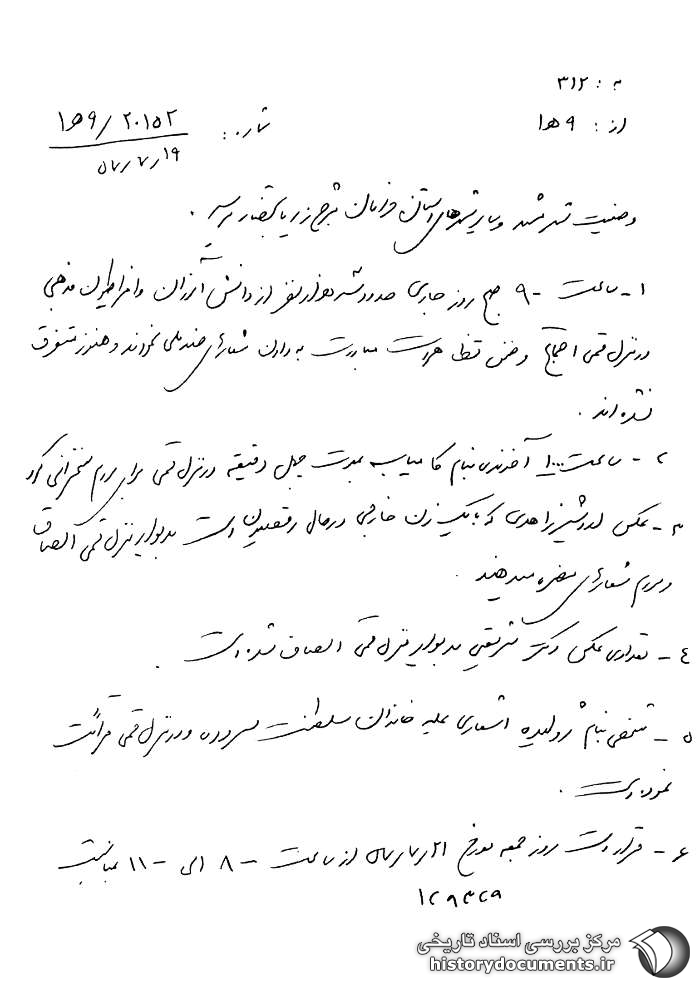 به : ۳۱۲
از : ۹ ه‍ ۱
شماره : ۲۰۱۵۲ / ۹ ه‍ ۱
۵۷/۷/۱۹
وضعیت شهر مشهد و سایر شهرهای استان خراسان بشرح زیر باستحضار میرسد .
۱ - ساعت ۹۰۰ صبح روز جاری حدود شش هزار نفر از دانش آموزان و افراطیون مذهبی
در منزل قمی اجتماع و ضمن تظاهرات مبادرت به دادن شعارهای ضد ملی نموده‌اند و هنوز متفرق
نشده اند .
۲ - ساعت ۱۰۰۰ آخوندی بنام کامیاب بمدت چهل دقیقه در منزل قمی برای مردم سخنرانی کرد
۳ - عکس اردشیر زاهدی که با یک زن خارجی در حال رقصیدن است بدیوار منزل قمی الصاق
و مردم شعارهای مضره میدهند .
٤ - تعدادی عکس دکتر شریعتی بدیوار منزل قمی الصاق شده است .
۵ - شخصی بنام ژولیده اشعاری علیه خاندان سلطنت سروده و در منزل قمی قرائت
نموده است .
۶ - قرار است روز جمعه مورخ ۵۷/۷/۲۱ از ساعت ۸۰۰ الی ۱۱۰۰ بمناسبت
۱۲۹۳۲۹
مرکز بررسی اسناد تاریخی
historydocuments.ir